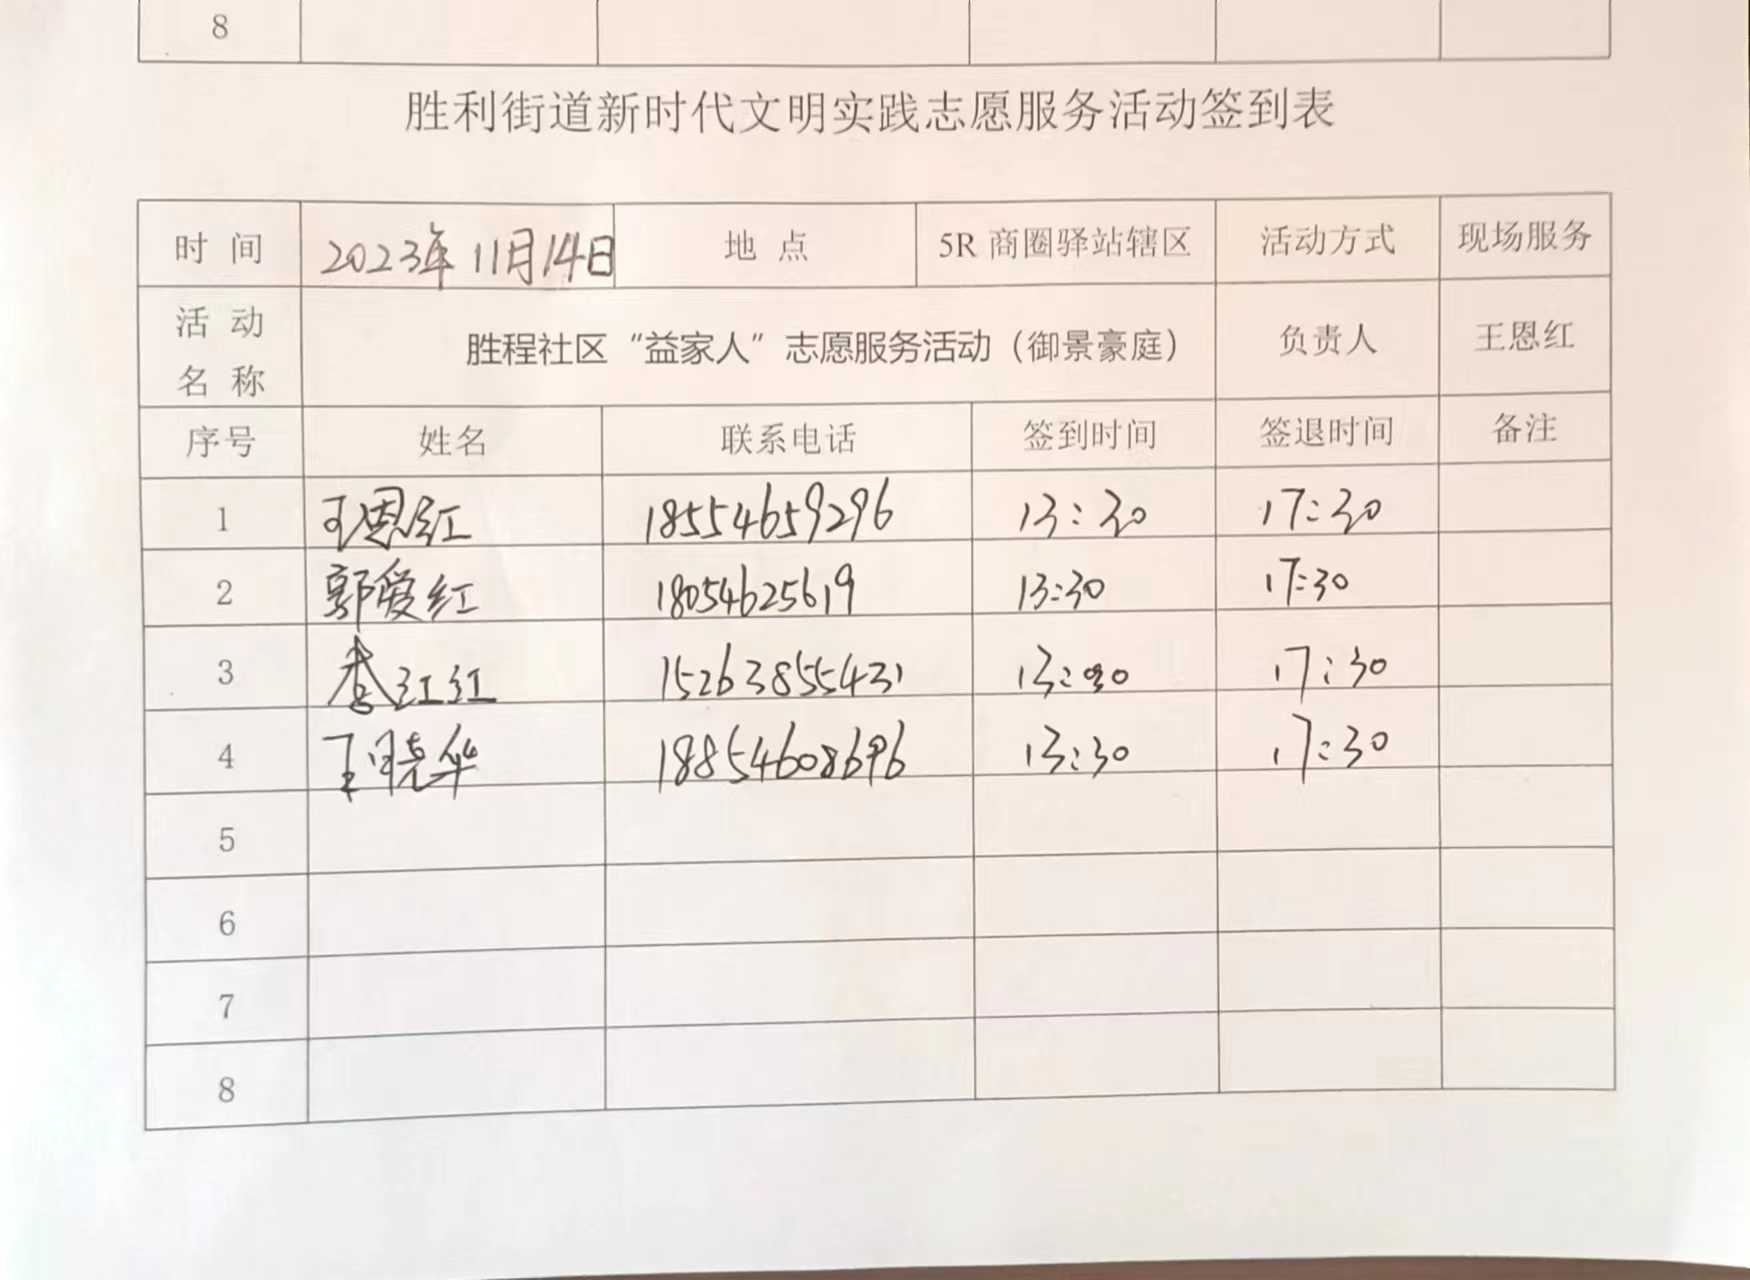 8
胜利街道新时代文明实践志愿服务活动签到表
时 间 2023年11月14日 地 点 5R 商圈驿站辖区 活动方式 现场服务
活 动 名 称 胜程社区“益家人”志愿服务活动（御景豪庭） 负责人 王恩红
序号 姓名 联系电话 签到时间 签退时间 备注
1 王恩红 18554659296 13:30 17:30
2 郭爱红 18054625619 13:30 17:30
3 红红 15263855431 13:30 17:30
4 王晓华 18854608696 13:30 17:30
5
6
7
8